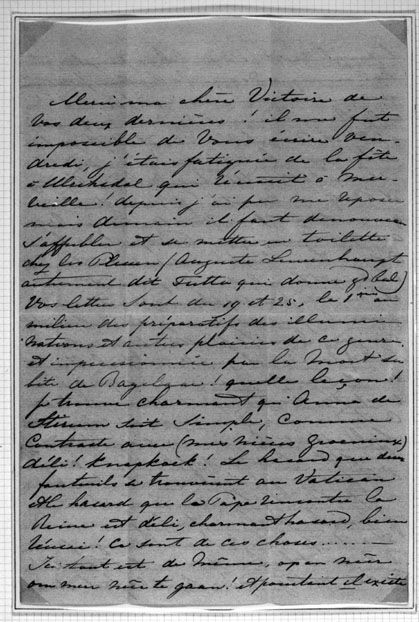 Merci ma chère Victoire de
vos deux dernières! il me fut
impossible de Vous écrire ven-
dredi, j'étais fatiguée de la fête
à Ulriksdal qui réussit à mer-
veille! depuis j'ai pu me repose
mais demain il faut denouveau
s'affubler et se mettre en toilette
chez les Plessen (Auguste Lewenhaupt
autrement dit Tutta qui donne gd bal)
Vos lettres sont du 19 et 25, la 1re au
milieu des préparatifs des illumi
nations et autres plaisirs de ce genre
et impressionnée par la mort su
bite de quelle leçon!
Je trouve charmant qu'Anna de
Stirum soit Simple, comme
Contraste avec (mes nièces Groeninx)
déli! Knapkoek! Le hasard que deux
fauteuils se trouvaient au Vatican
et le hasard que le Pape rencontre la
Reine et déli, charmant hasard, bien
réussi! Ce sont de ces choses......
Ici tout est de même, op en neer
om mee te gaan! et pourtant il existe